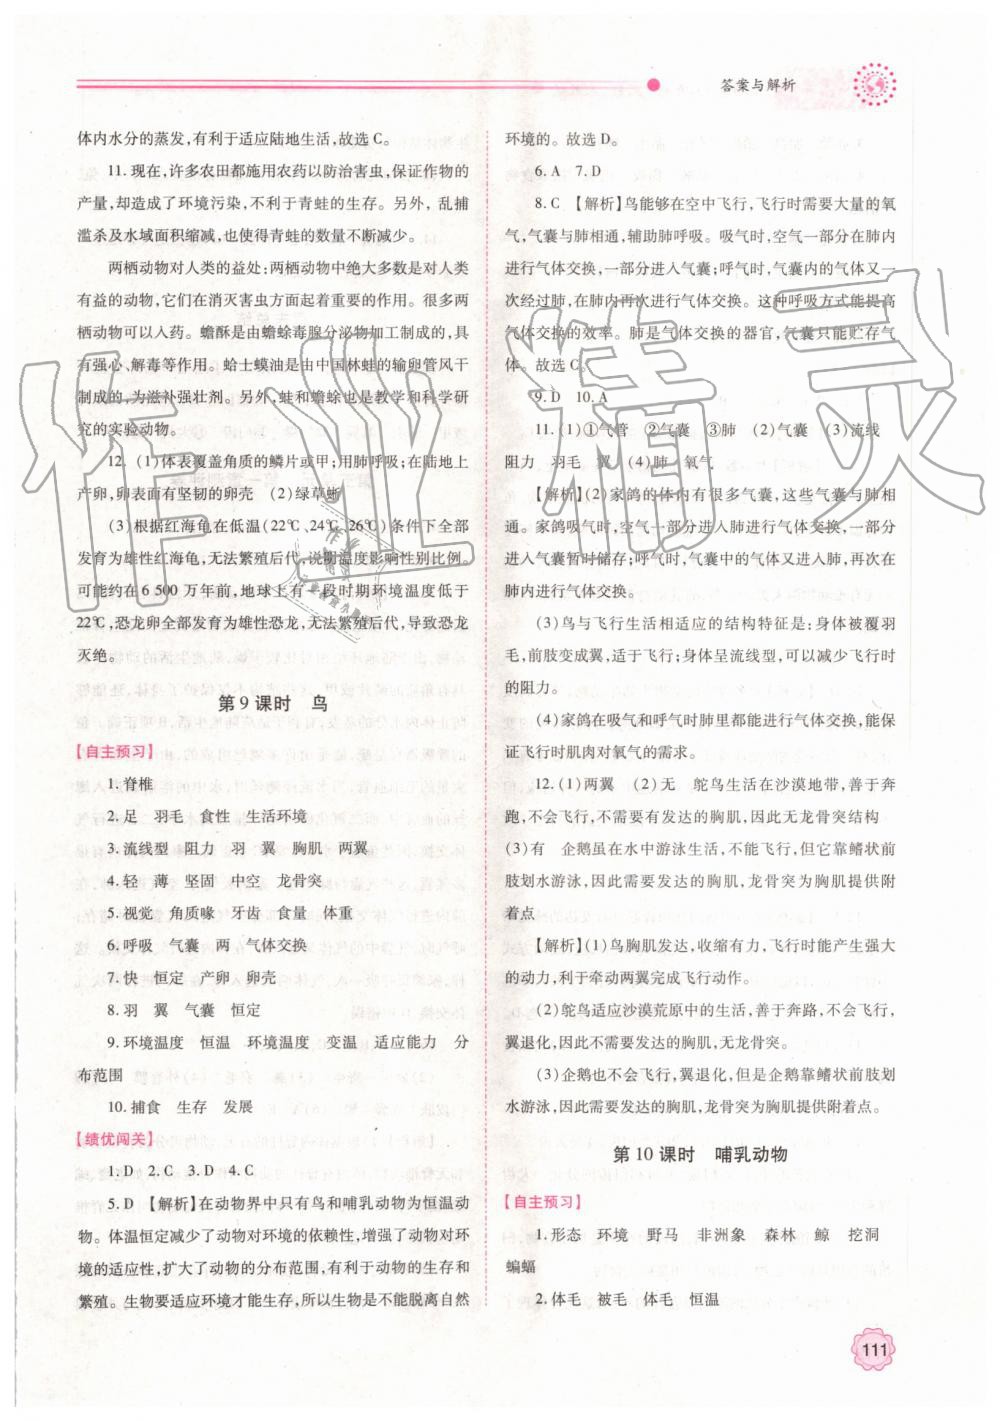 答案与解析
体内水分的蒸发,有利于适应陆地生活,故选C。
11. 现在,许多农田都施用农药以防治害虫,保证作物的
产量,却造成了环境污染,不利于青蛙的生存。另外, 乱捕
滥杀及水域面积缩减,也使得青蛙的数量不断减少。
两栖动物对人类的益处:两栖动物中绝大多数是对人类
有益的动物,它们在消灭害虫方面起重要作用。很多两
栖动物可以入药。蟾酥是由蟾蜍毒腺分泌物加工制成的,具
有强心、解毒等作用。蛤士蟆油是由中国林蛙的输卵管风干
制成的,为滋补强壮剂。另外,蛙和蟾蜍也是教学和科学研
究的实验动物。
12. (1)体表覆盖角质的鳞片或甲;用肺呼吸;在陆地上
产卵,卵表面有坚韧的卵壳 (2)绿草蜥
(3)根据红海龟在低温(22℃、24℃、26℃)条件下全部
发育为雄性红海龟,无法繁殖后代,说明温度影响性别比例,
可能约在6 500万年前,地球上有一段时期环境温度低于
22℃,恐龙卵全部发育为雄性恐龙,无法繁殖后代,导致恐龙
灭绝。
第9课时 鸟
【自主预习】
1. 脊椎
2. 足 羽毛 食性 生活环境
3. 流线型 阻力 羽 翼 胸肌 两翼
4. 轻 薄 坚固 中空 龙骨突
5. 视觉 角质喙 牙齿 食量 体重
6. 呼吸 气囊 两 气体交换
7. 快 恒定 产卵 卵壳
8. 羽 翼 气囊 恒定
9. 环境温度 恒温 环境温度 变温 适应能力 分
布范围
10. 捕食 生存 发展
【绩优闯关】
1. D 2. C 3. D 4. C
5. D 【解析】在动物界中只有鸟和哺乳动物为恒温动
物。体温恒定减少了动物对环境的依赖性,增强了动物对环
境的适应性,扩大了动物的分布范围,有利于动物的生存和
繁殖。生物要适应环境才能生存,所以生物是不能脱离自然
环境的。故选D。
6. A 7. D
8. C 【解析】鸟能够在空中飞行,飞行时需要大量的氧
气,气囊与肺相通,辅助肺呼吸。吸气时,空气一部分在肺内
进行气体交换,一部分进入气囊;呼气时,气囊内的气体又一
次经过肺,在肺内再进行气体交换。这种呼吸方式能提高
气体交换的效率。肺是气体交换的器官,气囊只能贮存气
体。故选C。
9. D 10. A
11. (1)①气管 ②气囊 ③肺 (2)气囊 (3)流线
阻力 羽毛 翼 (4)肺 氧气
【解析】(2)家鸽的体内有很多气囊,这些气囊与肺相
通。家鸽吸气时,空气一部分进入肺进行气体交换,一部分
进入气囊暂时储存;呼气时,气囊中的气体又进入肺,再次在
肺内进行气体交换。
(3)鸟与飞行生活相适应的结构特征是:身体被覆羽
毛,前肢变成翼,适于飞行;身体呈流线型,可以减少飞行时
的阻力。
(4)家鸽在吸气和呼气时肺里都能进行气体交换,能保
证飞行时肌肉对氧气的需求。
12. (1)两翼 (2)无 鸵鸟生活在沙漠地带,善于奔
跑,不会飞行,不需要有发达的胸肌,因此无龙骨突结构
(3)有 企鹅虽在水中游泳生活,不能飞行,但它靠鳍状前
肢划水游泳,因此需要发达的胸肌,龙骨突为胸肌提供附
着点
【解析】(1)鸟胸肌发达,收缩有力,飞行时能产生强大
的动力,利于牵动两翼完成飞行动作。
(2)鸵鸟适应沙漠荒原中的生活,善于奔跑,不会飞行,
翼退化,因此不需要发达的胸肌,无龙骨突。
(3)企鹅也不会飞行,翼退化,但是企鹅靠鳍状前肢划
水游泳,因此需要发达的胸肌,龙骨突为胸肌提供附着点。
第10课时 哺乳动物
【自主预习】
1. 形态 环境 野马 非洲象 森林 鲸 挖洞
蝙蝠
2. 体毛 被毛 体毛 恒温
111
作业精灵